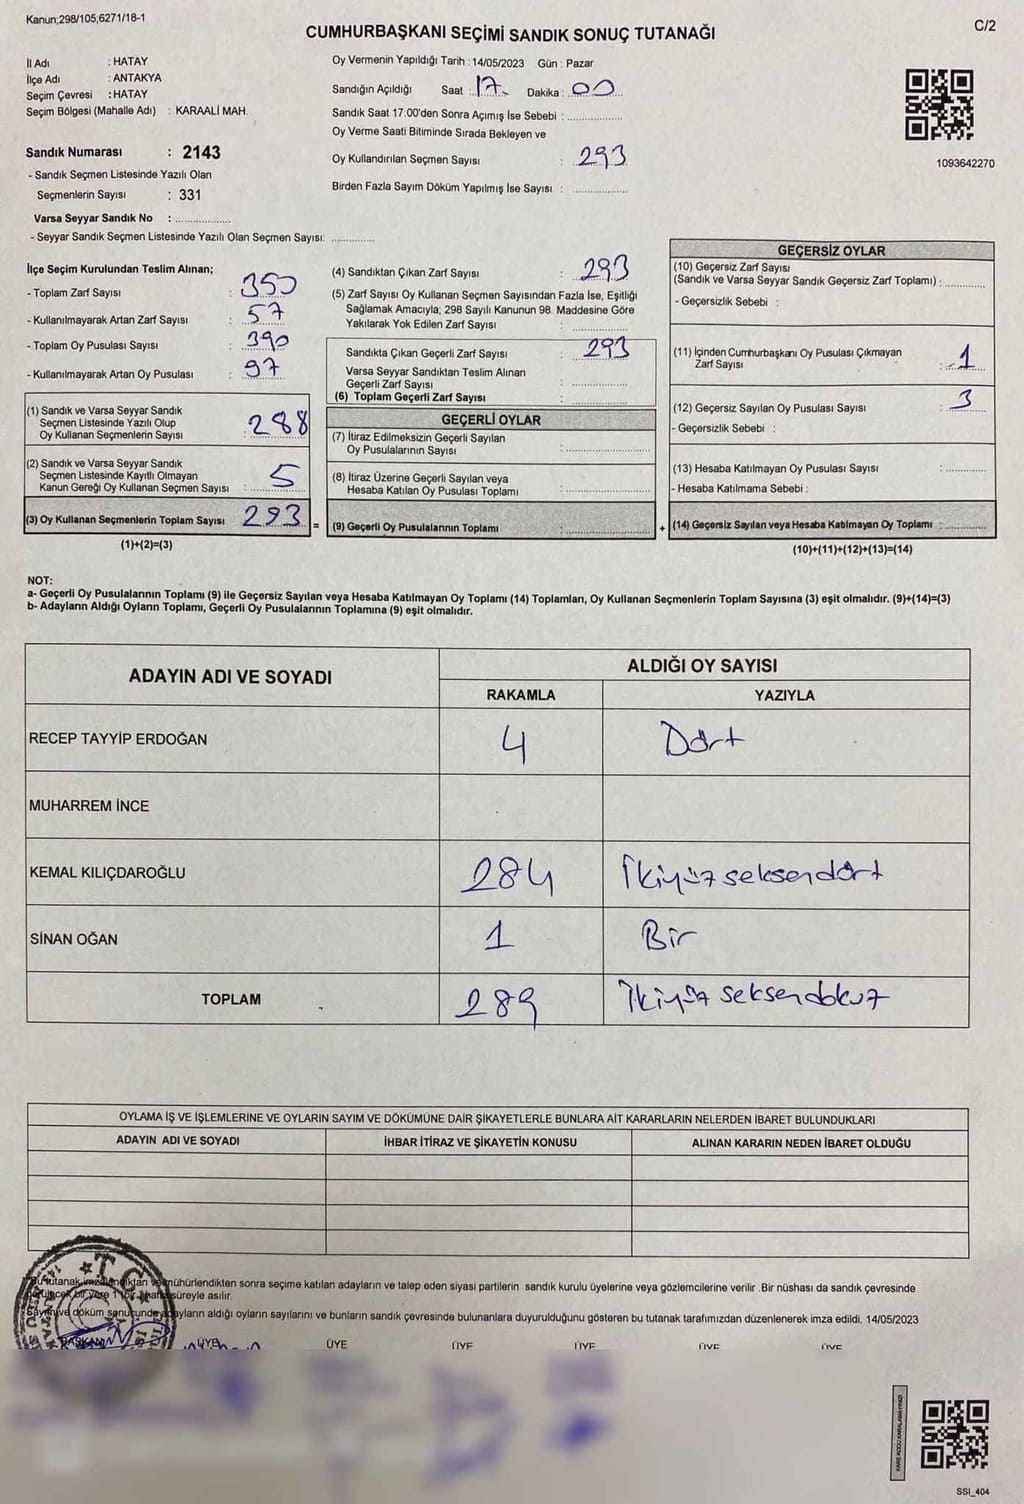 Kanun;298/105;6271/18-1
CUMHURBAŞKANI SEÇİMİ SANDIK SONUÇ TUTANAĞI
C/2
İl Adı : HATAY
İlçe Adı : ANTAKYA
Seçim Çevresi : HATAY
Seçim Bölgesi (Mahalle Adı) : KARAALİ MAH.
Sandık Numarası : 2143
- Sandık Seçmen Listesinde Yazılı Olan
Seçmenlerin Sayısı : 331
Varsa Seyyar Sandık No : ....................
- Seyyar Sandık Seçmen Listesinde Yazılı Olan Seçmen Sayısı: ................
Oy Vermenin Yapıldığı Tarih : 14/05/2023 Gün : Pazar
Sandığın Açıldığı Saat : 17 Dakika : 00
Sandık Saat 17:00'den Sonra Açımış İse Sebebi : ....................
Oy Verme Saati Bitiminde Sırada Bekleyen ve
Oy Kullandırılan Seçmen Sayısı : 293
Birden Fazla Sayım Döküm Yapılmış İse Sayısı : ....................
1093642270
İlçe Seçim Kurulundan Teslim Alınan;
- Toplam Zarf Sayısı : 350
- Kullanılmayarak Artan Zarf Sayısı : 57
- Toplam Oy Pusulası Sayısı : 390
- Kullanılmayarak Artan Oy Pusulası : 97
(1) Sandık ve Varsa Seyyar Sandık
Seçmen Listesinde Yazılı Olup
Oy Kullanan Seçmenlerin Sayısı : 288
(2) Sandık ve Varsa Seyyar Sandık
Seçmen Listesinde Kayıtlı Olmayan
Kanun Gereği Oy Kullanan Seçmen Sayısı : 5
(3) Oy Kullanan Seçmenlerin Toplam Sayısı 293 =
(1)+(2)=(3)
(4) Sandıktan Çıkan Zarf Sayısı : 293
(5) Zarf Sayısı Oy Kullanan Seçmen Sayısından Fazla İse, Eşitliği
Sağlamak Amacıyla; 298 Sayılı Kanunun 98. Maddesine Göre
Yakılarak Yok Edilen Zarf Sayısı : ....................
Sandıkta Çıkan Geçerli Zarf Sayısı : 293
Varsa Seyyar Sandıktan Teslim Alınan
Geçerli Zarf Sayısı : ....................
(6) Toplam Geçerli Zarf Sayısı : ....................
GEÇERLİ OYLAR
(7) İtiraz Edilmeksizin Geçerli Sayılan
Oy Pusulalarının Sayısı : ....................
(8) İtiraz Üzerine Geçerli Sayılan veya
Hesaba Katılan Oy Pusulası Toplamı : ....................
(9) Geçerli Oy Pusulalarının Toplamı : .................... +
GEÇERSİZ OYLAR
(10) Geçersiz Zarf Sayısı
(Sandık ve Varsa Seyyar Sandık Geçersiz Zarf Toplamı) : ............
- Geçersizlik Sebebi :
(11) İçinden Cumhurbaşkanı Oy Pusulası Çıkmayan
Zarf Sayısı : 1
(12) Geçersiz Sayılan Oy Pusulası Sayısı : 3
- Geçersizlik Sebebi :
(13) Hesaba Katılmayan Oy Pusulası Sayısı : ............
- Hesaba Katılmama Sebebi :
(14) Geçersiz Sayılan veya Hesaba Katılmayan Oy Toplamı : ............
(10)+(11)+(12)+(13)=(14)
NOT:
a- Geçerli Oy Pusulalarının Toplamı (9) ile Geçersiz Sayılan veya Hesaba Katılmayan Oy Toplamı (14) Toplamları, Oy Kullanan Seçmenlerin Toplam Sayısına (3) eşit olmalıdır. (9)+(14)=(3)
b- Adayların Aldığı Oyların Toplamı, Geçerli Oy Pusulalarının Toplamına (9) eşit olmalıdır.
ADAYIN ADI VE SOYADI
ALDIĞI OY SAYISI
RAKAMLA YAZIYLA
RECEP TAYYİP ERDOĞAN 4 Dört
MUHARREM İNCE
KEMAL KILIÇDAROĞLU 284 İkiyüz seksendört
SİNAN OĞAN 1 Bir
TOPLAM 289 İkiyüz seksendokuz
OYLAMA İŞ VE İŞLEMLERİNE VE OYLARIN SAYIM VE DÖKÜMÜNE DAİR ŞİKAYETLERLE BUNLARA AİT KARARLARIN NELERDEN İBARET BULUNDUKLARI
ADAYIN ADI VE SOYADI İHBAR İTİRAZ VE ŞİKAYETİN KONUSU ALINAN KARARIN NEDEN İBARET OLDUĞU
Bu tutanak imzalandıktan ve mühürlendikten sonra seçime katılan adayların ve talep eden siyasi partilerin sandık kurulu üyelerine veya gözlemcilerine verilir .Bir nüshası da sandık çevresinde
süreyle asılır.
Sayım ve döküm sonucunda adayların aldığı oyların sayılarını ve bunların sandık çevresinde bulunanlara duyurulduğunu gösteren bu tutanak tarafımızdan düzenlenerek imza edildi. 14/05/2023
BAŞKAN ÜYE ÜYE ÜYE ÜYE ÜYE ÜYE
T.C.
SSI_404